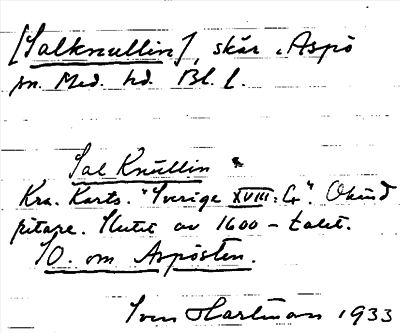 [Salknullin], skär, Aspö
sn. Med. hd. Bl. l.
Sal Knüllin
Kra. Karts. "Sverige XVIII: G". Okänd
ritare. Slutet av 1600-talet.
SO. om Aspösten.
Sven Hartman 1933